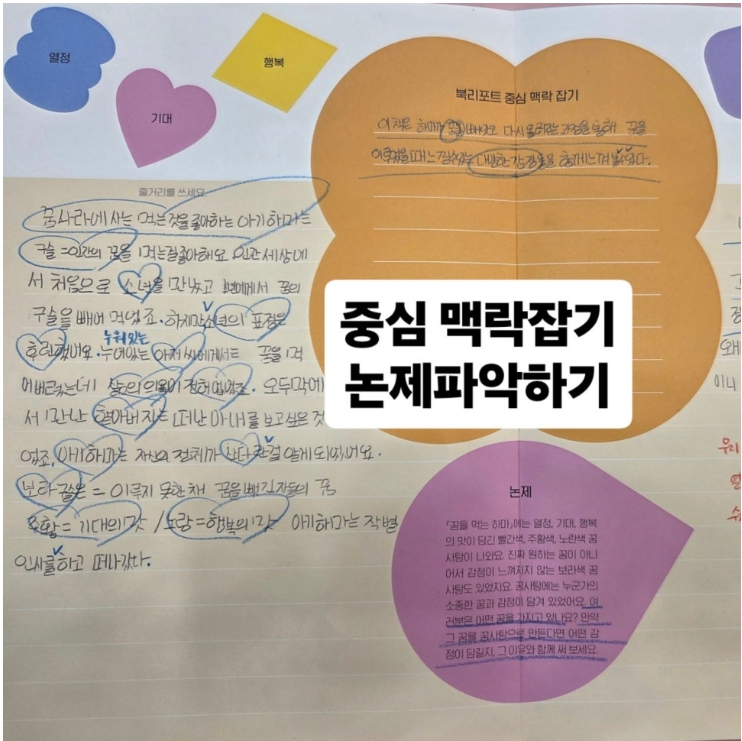 열정
기대
행복
북리포트 중심 맥락 잡기
이 책은 해마가 꿈을 빼앗고 다시 돌려주는 과정을 통해 꿈을
이루었을 때 느낄 수 있는 다양한 감정들을 함께 느껴 볼 수 있다.
줄거리를 쓰세요.
꿈나라에 사는 먹는것을 좋아하는 아기해마는
구슬=인간의 꿈을 먹는걸 좋아해요. 인간세상에
서 처음으로 소녀를 만났고 꿈의
구슬을 빼어 먹었죠. 하지만 소녀의 표정은
누워있는
아저씨에게서도 꿈을 먹
어버렸는데 삶의 의욕이 오두막에
서 만난 할아버지는 떠난 아내를 보고싶은 것
였죠. 아기해마는 자신의 알게 되었어요.
보라 = 이루지 못한채 꿈을 뺏긴자들의 꿈
주황=기대의 맛/노랑=행복의 맛 아기해마는 작별
인사를 하고 떠나갔다.
중심 맥락잡기
논제파악하기
논제
『꿈을 먹는 하마』에는 열정, 기대, 행복
의 맛이 담긴 빨간색, 주황색, 노란색 꿈
사탕이 나와요. 진짜 원하는 꿈이 아니
어서 감정이 느껴지지 않는 보라색 꿈
사탕도 있었지요. 꿈사탕에는 누군가의
소중한 꿈과 감정이 담겨 있었어요. 여
러분은 어떤 꿈을 가지고 있나요? 만약
그 꿈을 꿈사탕으로 만든다면 어떤 감
정이 담길지, 그 이유와 함께 써 보세요.
이니
우리